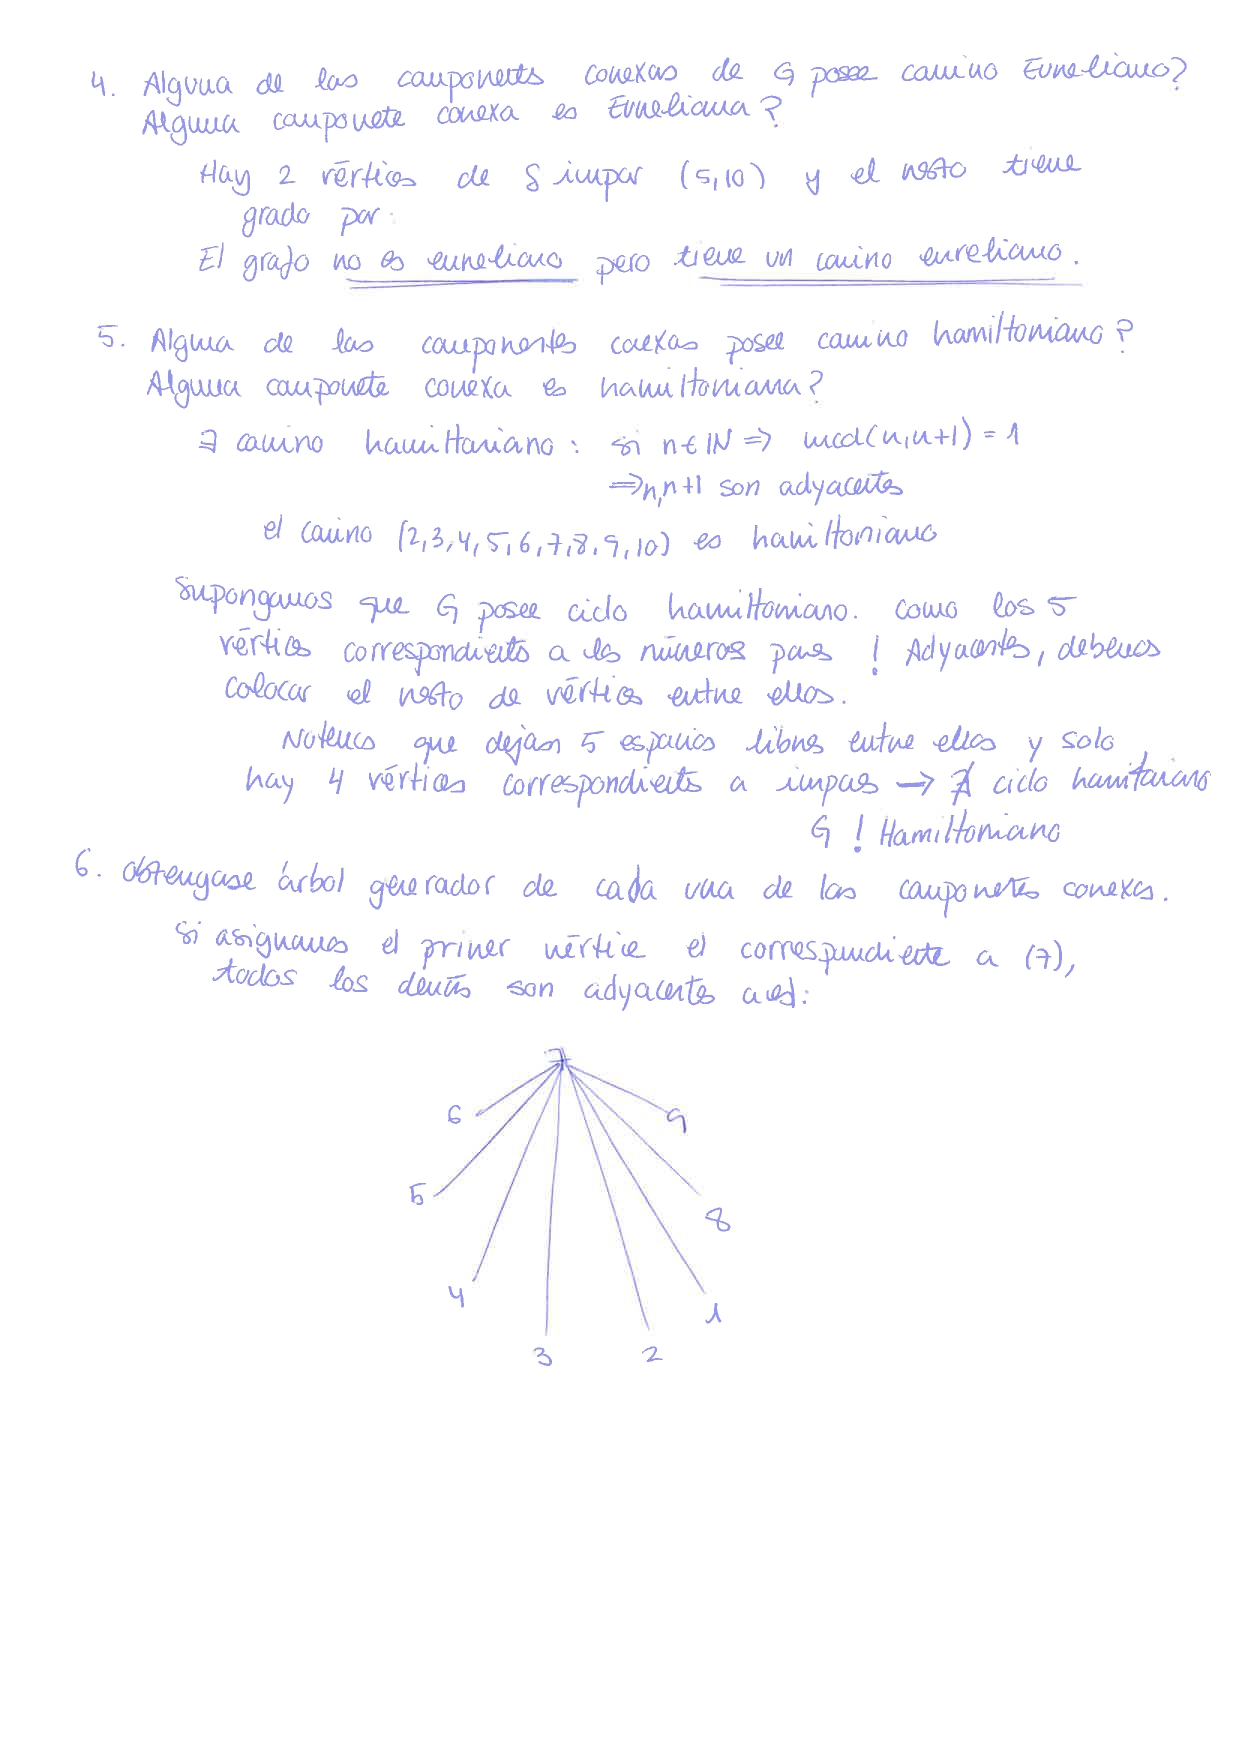 4. Alguna de las componentes conexas de G posee camino Eureliano?
Alguna componete conexa es Eureliana?
Hay 2 vértices de δ impar (5,10) y el resto tiene
grado par.
El grafo no es eureliano pero tiene un camino eureliano.
5. Alguna de las componentes conexas posee camino hamiltoniano?
Alguna componete conexa es hamiltoniana?
∃ camino hamiltoniano: si n∈ℕ ⇒ mcd(n,n+1) = 1
⇒ n,n+1 son adyacentes
el camino (2,3,4,5,6,7,8,9,10) es hamiltoniano
Supongamos que G posee ciclo hamiltoniano. Como los 5
vértices correspondientes a los números pares ! Adyacentes, debemos
colocar el resto de vértices entre ellos.
Notemos que dejan 5 espacios libres entre ellos y solo
hay 4 vértices correspondients a impares → ∄ ciclo hamiltoniano
G ! Hamiltoniano
6. obtengase árbol generador de cada una de las componetes conexas.
Si asignamos el primer vértice el correspondiente a (7),
todos los demás son adyacentes a él:
7
6
9
5
8
4
1
3
2